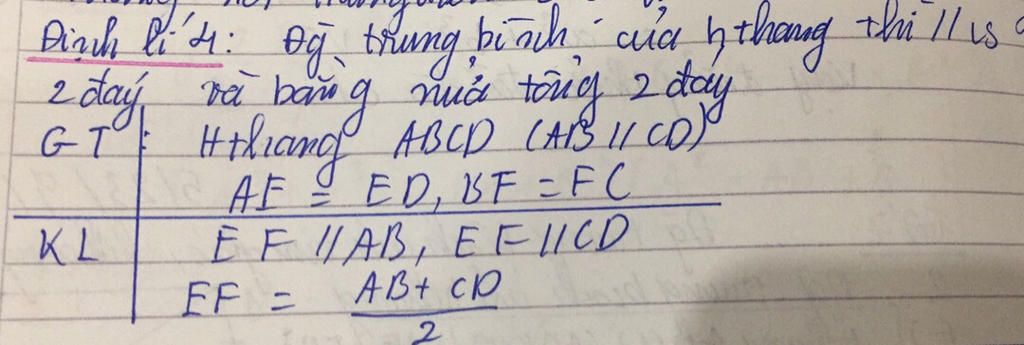 Định lí 4: Đg trung bình của hthang thì // vs
2 đáy và bằng nửa tổng 2 đáy
GT : Hthang ABCD (AB // CD)
AE = ED, BF = FC
KL EF // AB, EF // CD
EF = AB + CD
2